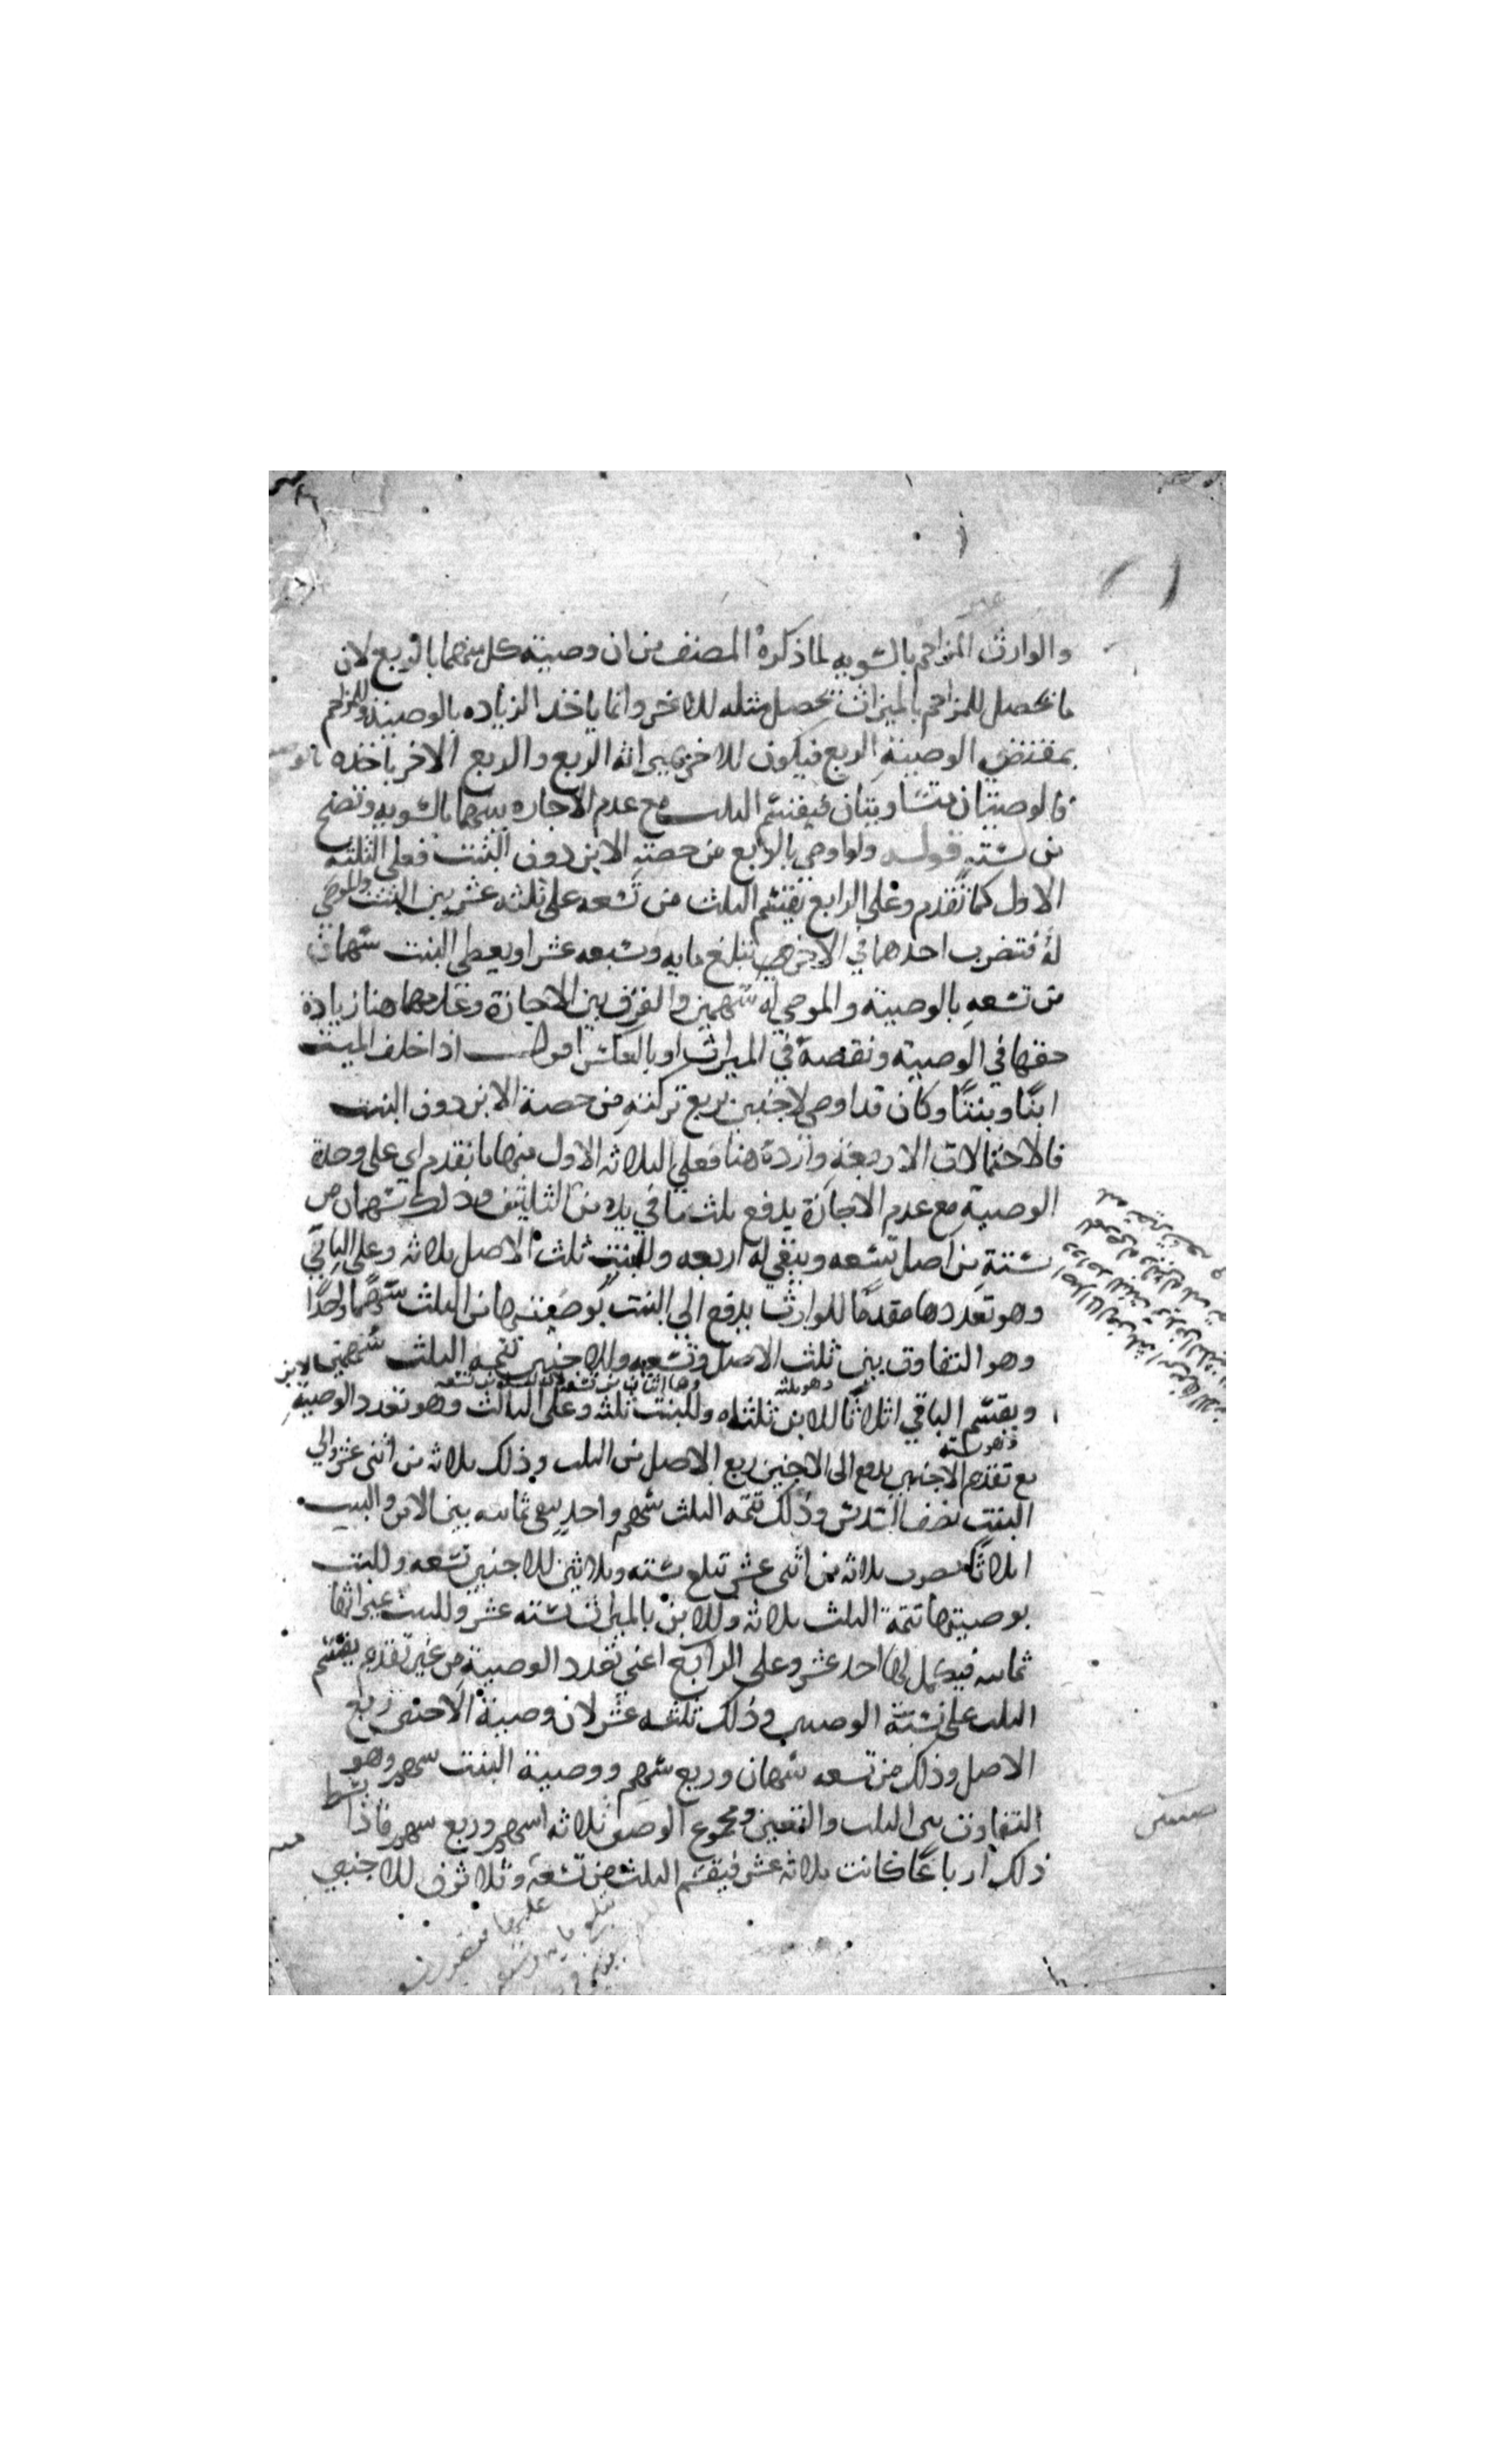 والوارث المزاحم بالسويه لما ذكره المصنف من ان وصية كل منهما بالربع لان
ما يحصل للمزاحم بالميراث يحصل مثله للاخر وانما ياخذ الزياده بالوصية وللمزاحم
بمقتضي الوصية الربع فيكون للاخر بميراثه الربع والربع الاخر ياخذه
فالوصيتان متساويتان فيقتسم الثلث مع عدم الاجازه بينهما بالسويه وتصح
من سته قوله ولو اوصي بالربع من حصة الابن دون البنت فعلي الثلثه
الاول كما تقدم وعلي الرابع يقتسم الثلث من تسعه علي ثلثه عشر بين البنت والموصي
له فتضرب احدهما في الاخر تبلغ مايه وسبعه عشر او يعطي البنت سهمان
من تسعه بالوصية والموصي له سهمين والفرق بين الاجازة وعدمها هنا زيادة
حقها في الوصيه ونقصه في الميراث او بالعكس اقول اذا خلف الميت
ابنًا وبنتًا وكان قد اوصي لاجنبي بربع تركته من حصة الابن دون البنت
فالاحتمالات الاربعة واردة هنا فعلي الثلاثه الاول منها ما تقدم اي على وحدة
الوصية مع عدم الاجازة يدفع ثلث ما في يده من الثلثين وذلك سهمان من
ستة من اصل تسعه ويبقي له اربعه وللبنت ثلث الاصل ثلاثه وعلي الباقي
وهو تعددها مقدمًا للوارث يدفع الي البنت بوصيتها من الثلث سهمًا واحدًا
وهو التفاوت بين ثلث الاصل وتسعيه وللاجنبي تتمه الثلث سهمين
ويقسم الباقي اثلاثًا للابن ثلثاه وللبنت ثلثه وعلي الثالث وهو تعدد الوصية
مع تقديم الاجنبي يدفع الى الاجنبي ربع الاصل من الثلث وذلك ثلاثه من اثني عشر والي
البنت نصف السدس وذلك تتمه الثلث سهم واحد يبقي ثمانيه بين الابن والبنت
اثلاثًا فتضرب ثلاثه في اثني عشر تبلغ سته وثلاثين للاجنبي تسعه وللبنت
بوصيتها تتمة الثلث ثلاثه وللابن بالميراث سته عشر وللبنت بميراثها
ثمانيه فيكمل لها احد عشر وعلي الرابع اعني تعدد الوصية من غير تقديم يقتسم
الثلث علي نسبة الوصيتين وذلك ثلثه عشر لان وصية الاجنبي ربع
الاصل وذلك من تسعه سهمان وربع سهم ووصية البنت سهم وهو
التفاوت بين الثلث والتسعين ومجموع الوصيتين ثلاثه اسهم وربع سهم فاذا بسط
ذلك ارباعًا كانت ثلاثه عشر فيقسم الثلث من تسعة وثلاثون للاجنبي